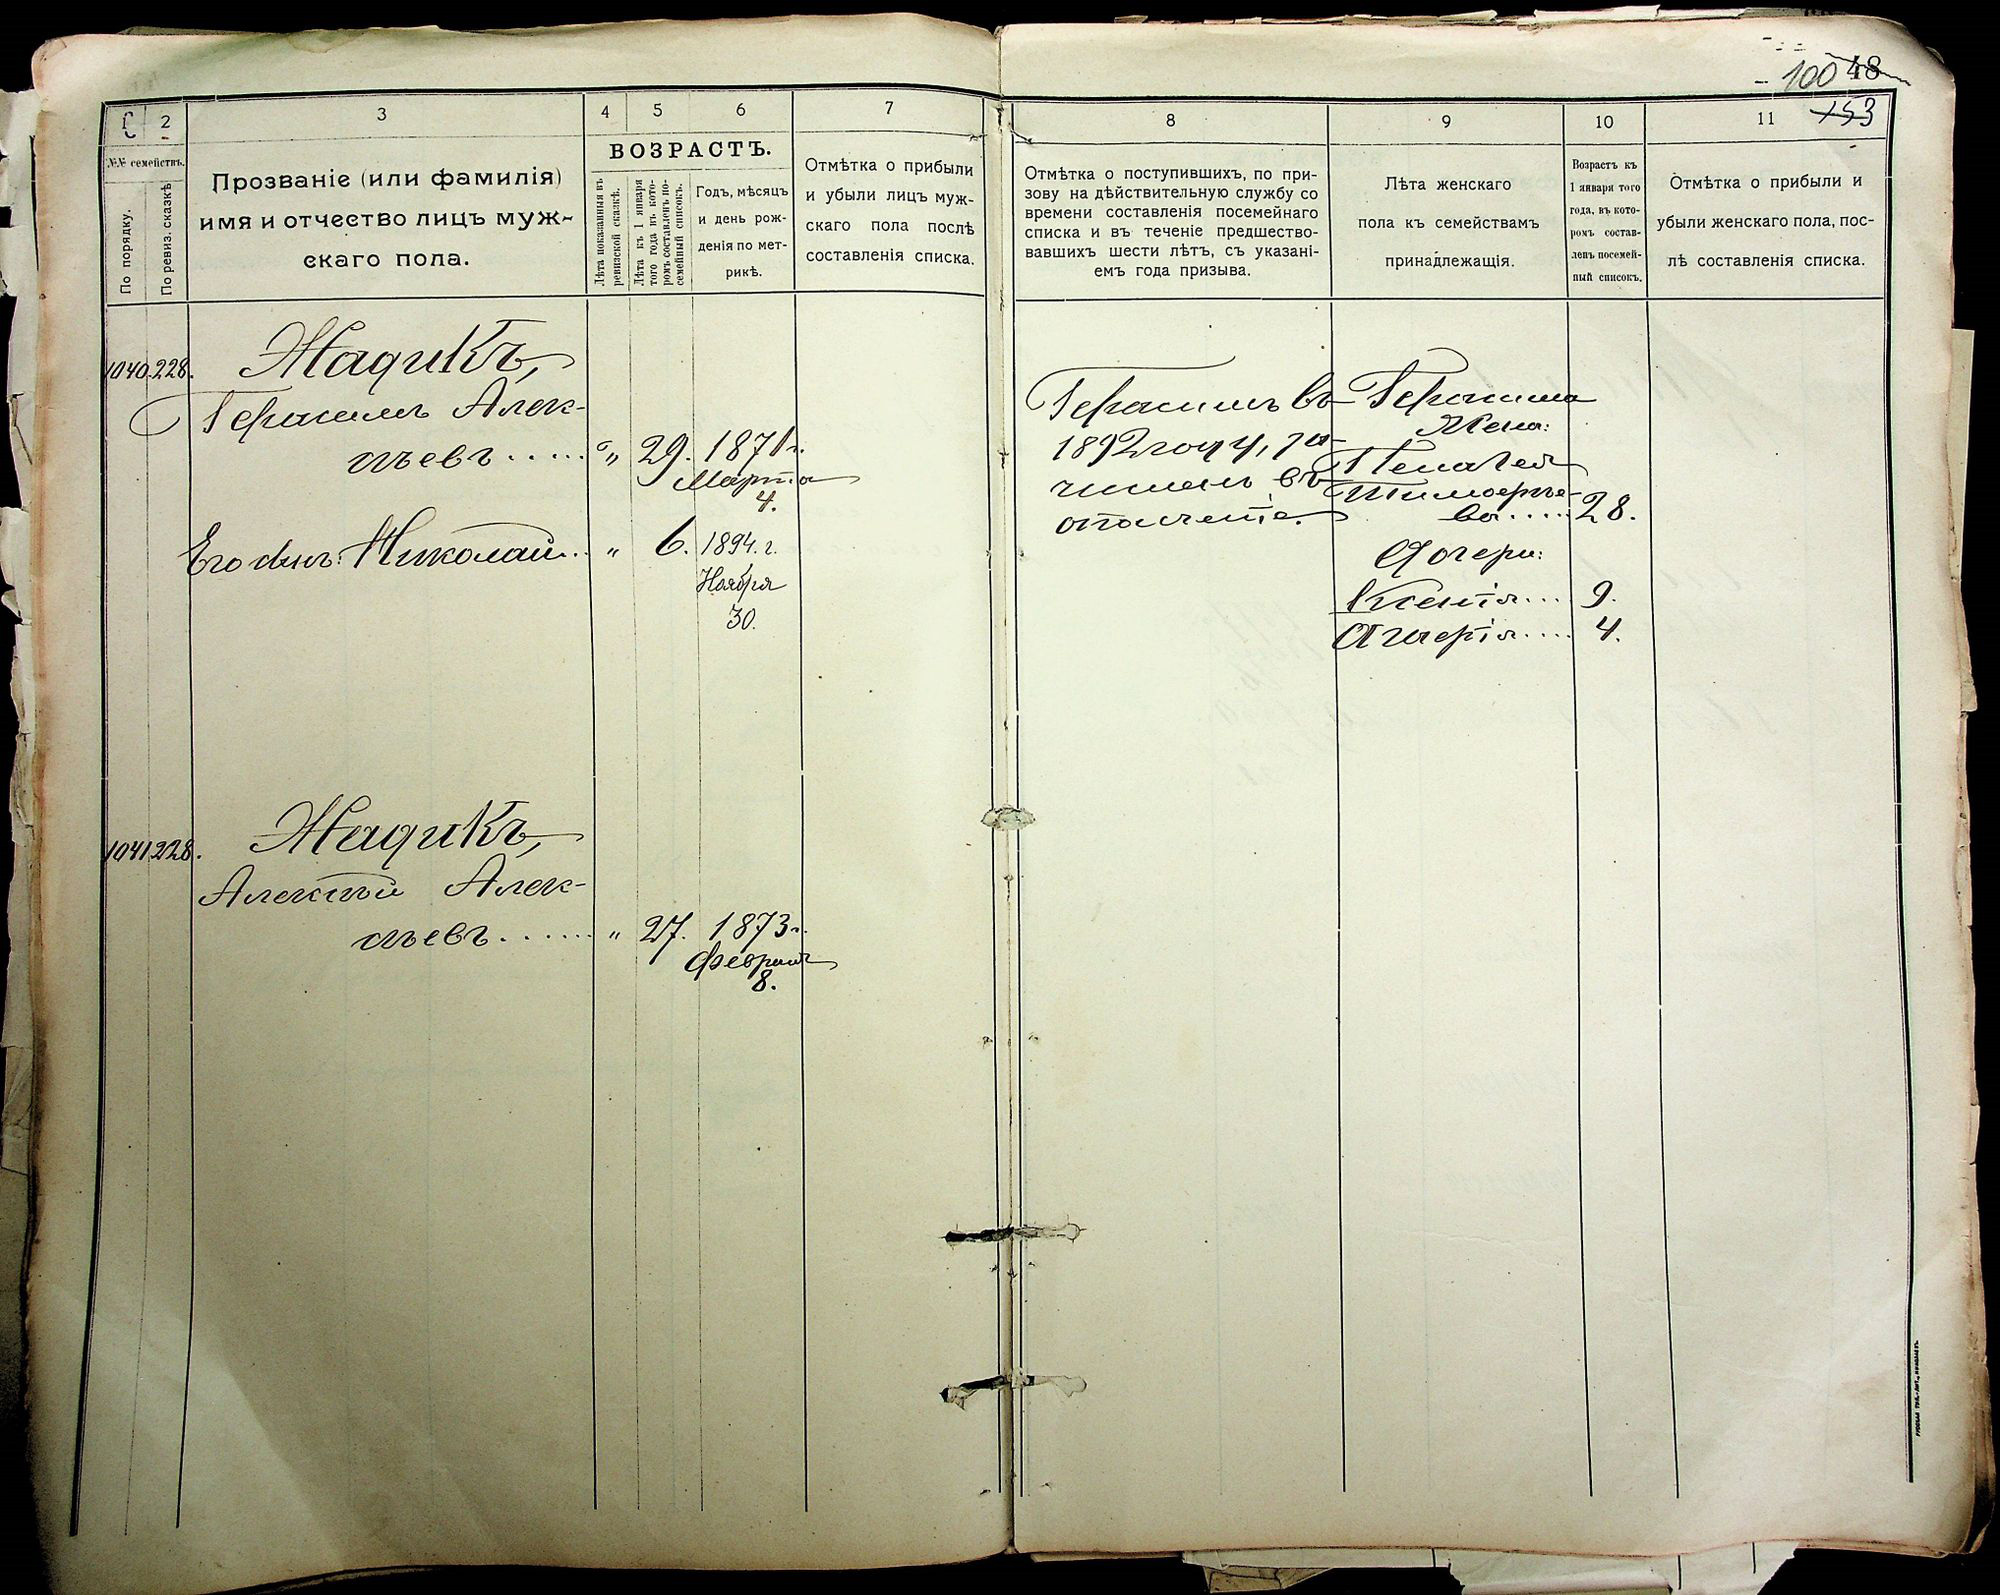 100 48
153
1
2
3
4
5
6
7
№№ семействъ.
По порядку.
По ревиз. сказкѣ
Прозваніе (или фамилія)
имя и отчество лицъ муж-
скаго пола.
ВОЗРАСТЪ.
Лѣта показанныя въ
ревизской сказкѣ.
Лѣта къ 1 января
того года въ кото-
ромъ составленъ по-
семейный списокъ.
Годъ, мѣсяцъ
и день рож-
денія по мет-
рикѣ.
Отмѣтка о прибыли
и убыли лицъ муж-
скаго пола послѣ
составленія списка.
1040. 228. Жадикъ,
Герасимъ Алек-
сѣевъ..... " 29. 1871 г.
Марта
4.
Его сынъ: Николай.. " 6. 1894. г.
Ноября
30.
1041 228. Жадикъ,
Алексѣй Алек-
сѣевъ...... " 27. 1873 г.
Февраля
8.
8
9
10
11
Отмѣтка о поступившихъ, по при-
зову на дѣйствительную службу со
времени составленія посемейнаго
списка и въ теченіе предшество-
вавшихъ шести лѣтъ, съ указані-
емъ года призыва.
Лѣта женскаго
пола къ семействамъ
принадлежащія.
Возрастъ къ
1 января того
года, въ кото-
ромъ состав-
ленъ посемей-
ный списокъ.
Отмѣтка о прибыли и
убыли женскаго пола, пос-
лѣ составленія списка.
Герасимъ въ
1892 году, за-
численъ въ
ополченіе.
Герасима
жена:
Пелагея
Тимофѣе-
ва..... 28.
Дочери:
Ксенія.... 9.
Глкерія.... 4.